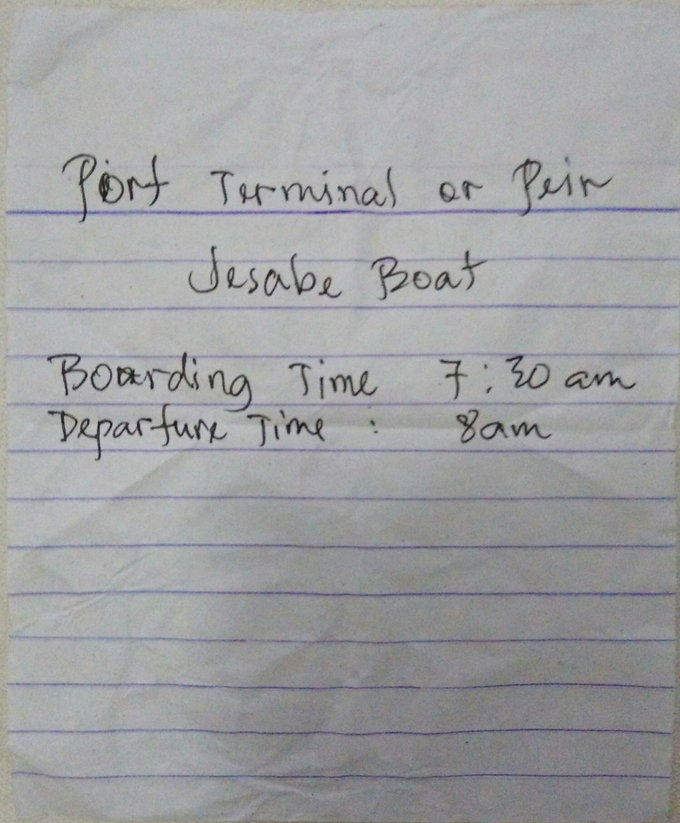 Port Terminal or Peir
Jesabe Boat
Boarding Time 7:30 am
Departure Time : 8am